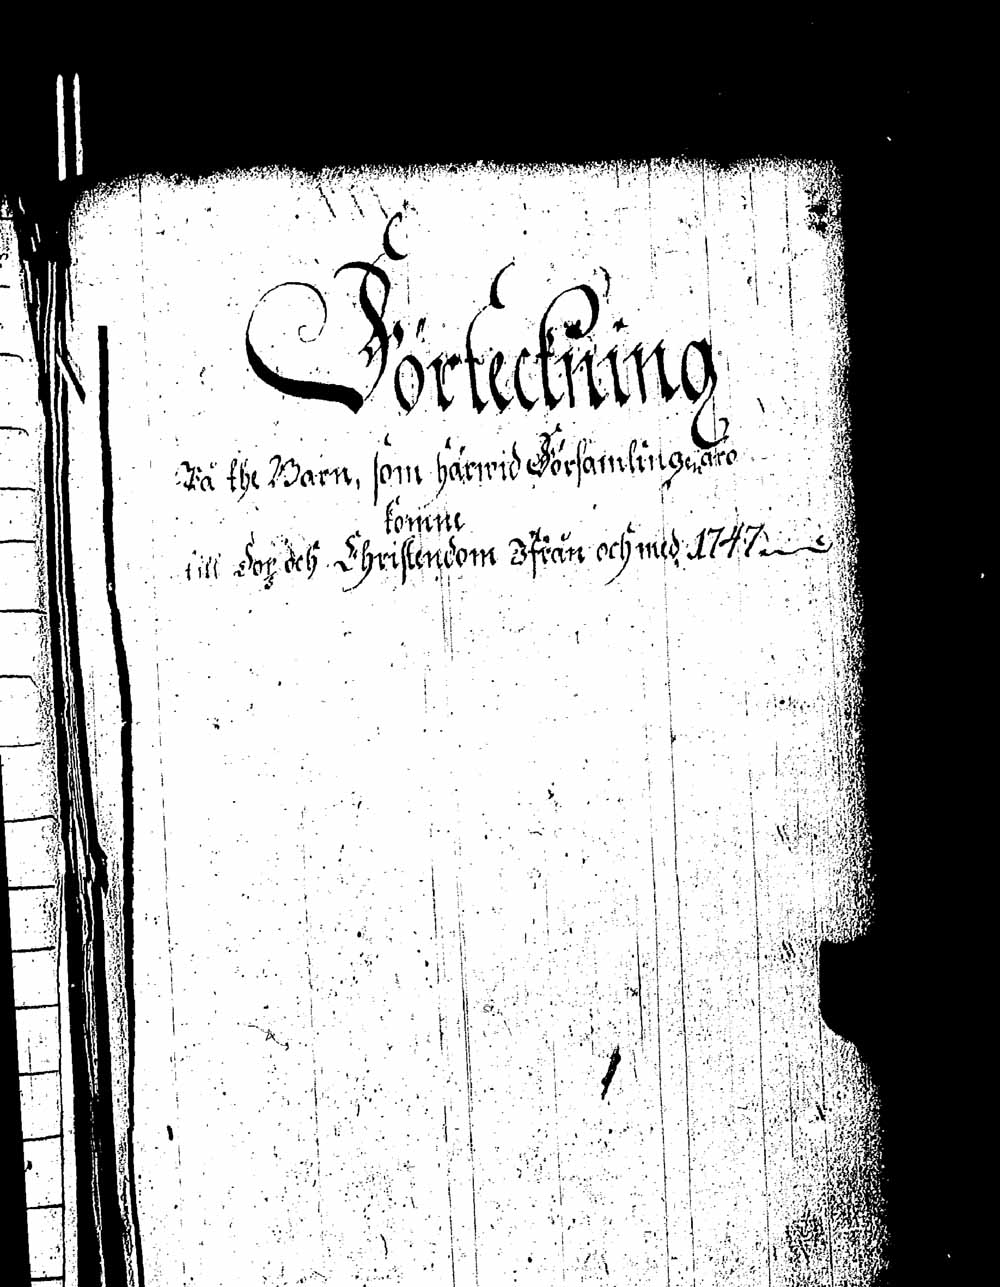 Förteckning
På the Barn, som härwid Församlingen äro
komne
till Dop och Christendom Ifrån och med 1747.